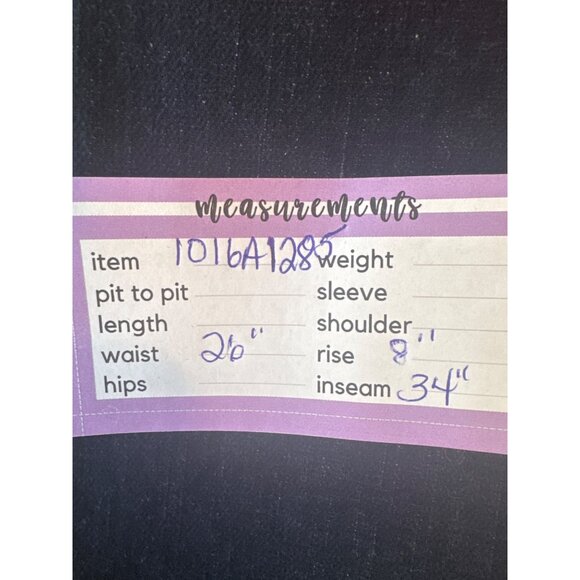 measurements
item 1016A1285 weight
pit to pit sleeve
length shoulder
waist 26" rise 8"
hips inseam 34"